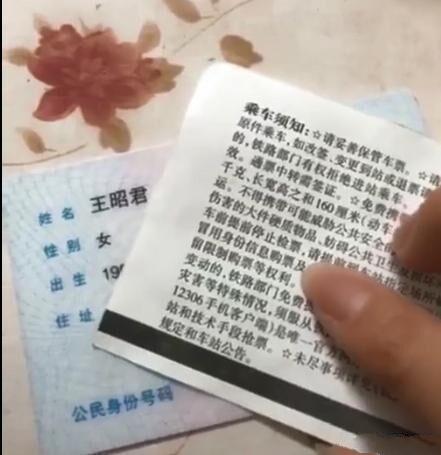 姓名 王昭君
性别 女
出生 199
住址
公民身份号码
乘车须知:☆请妥善保管车票。☆请
原件乘车,如改签、变更到站或退票
的,铁路部门有权拒绝进站乘车。
效。通票中转需签证。☆免费携
千克,长宽高之和160厘米(动车
运。不得携带可能威胁公共安全的
伤害的大件硬质物品、妨碍公共卫生
车前提前停止检票,请提前到
冒用身份信息购票及
留限制购票等权利。
变动的,铁路部门免费
灾害等特殊情况,须服从
12306手机客户端)是唯一官方
站和技术手段抢票。☆未尽事项详见
规定和车站公告。